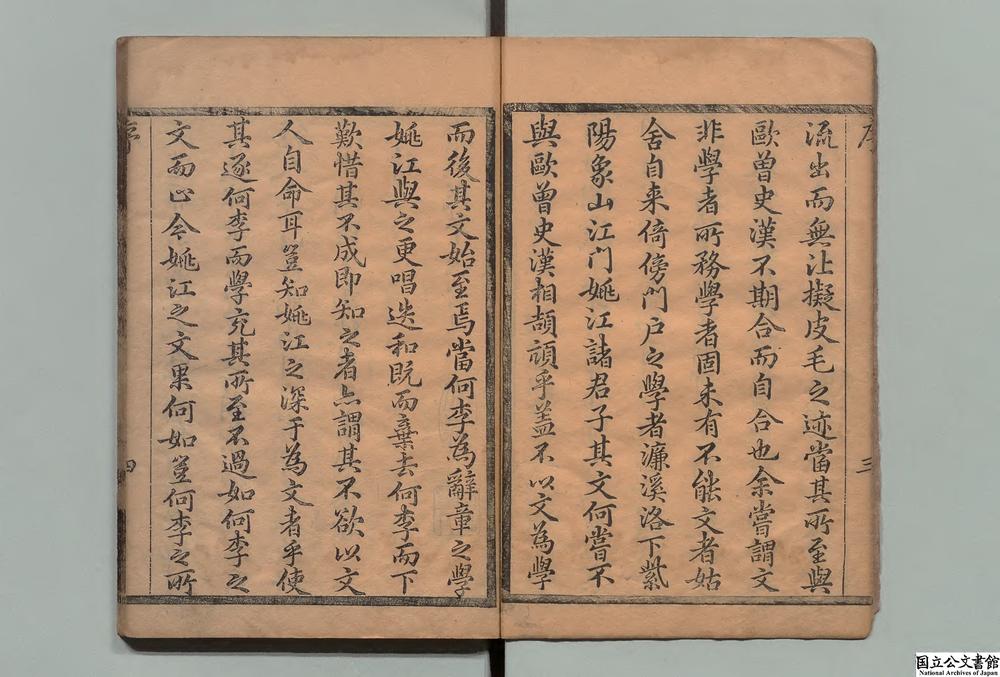 序
三
流出而無沚擬皮毛之迹當其所至與
歐曾史漢不期合而自合也余嘗謂文
非學者所務學者固未有不能文者姑
舍自来倚傍門户之學者濂溪洛下紫
陽象山江门姚江諸君子其文何嘗不
與歐曾史漢相頡頏乎盖不以文為學
而後其文始至焉當何李為辭章之學
姚江與之更唱迭和既而棄去何李而下
歎惜其不成即知之者亦謂其不欲以文
人自命耳豈知姚江之深于為文者乎使
其逐何李而學充其所至不過如何李之
文而止今姚江之文果何如豈何李之所
序
四
国立公文書館
National Archives of Japan